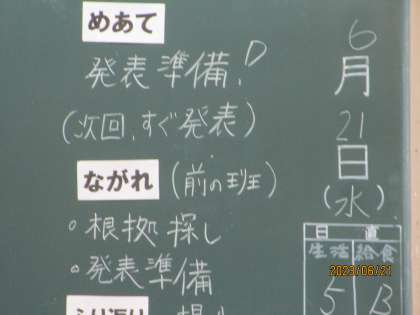 めあて
発表準備!
(次回、すぐ発表)
ながれ (前の班)
・根拠探し
・発表準備
ふり返り
6
月
21
日
(水)
日直
生活 給食
5 B
2023/06/21